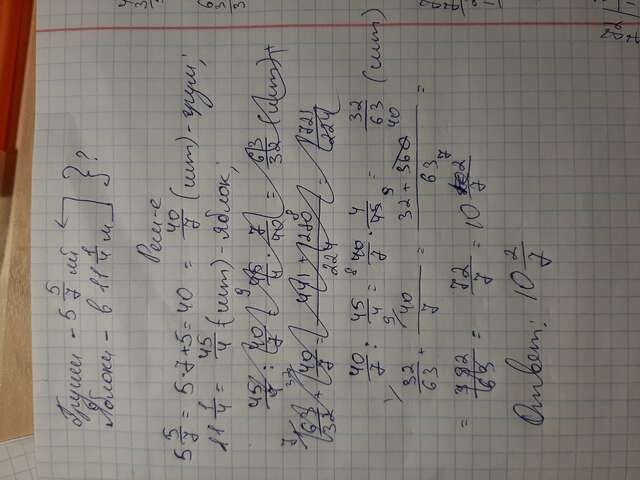 Груши - 5 5/7 ш } ?
Яблоки - в 11 1/4 м
Реш-е
5 5/7 = 5·7+5=40 = 40/7 (шт) - груш;
11 1/4 = 45/4 (шт) - яблок;
45/4 : 40/7 = 45/4 · 7/40 = 63/32 (шт)
63/32 + 40/7 = 441+1280/224 = 1721/224
40/7 : 45/4 = 40/7 · 4/45 = 32/63 (шт)
32/63 + 40/7 = 32+360/63 =
= 392/63 = 72/7 = 10 2/7
Ответ: 10 2/7